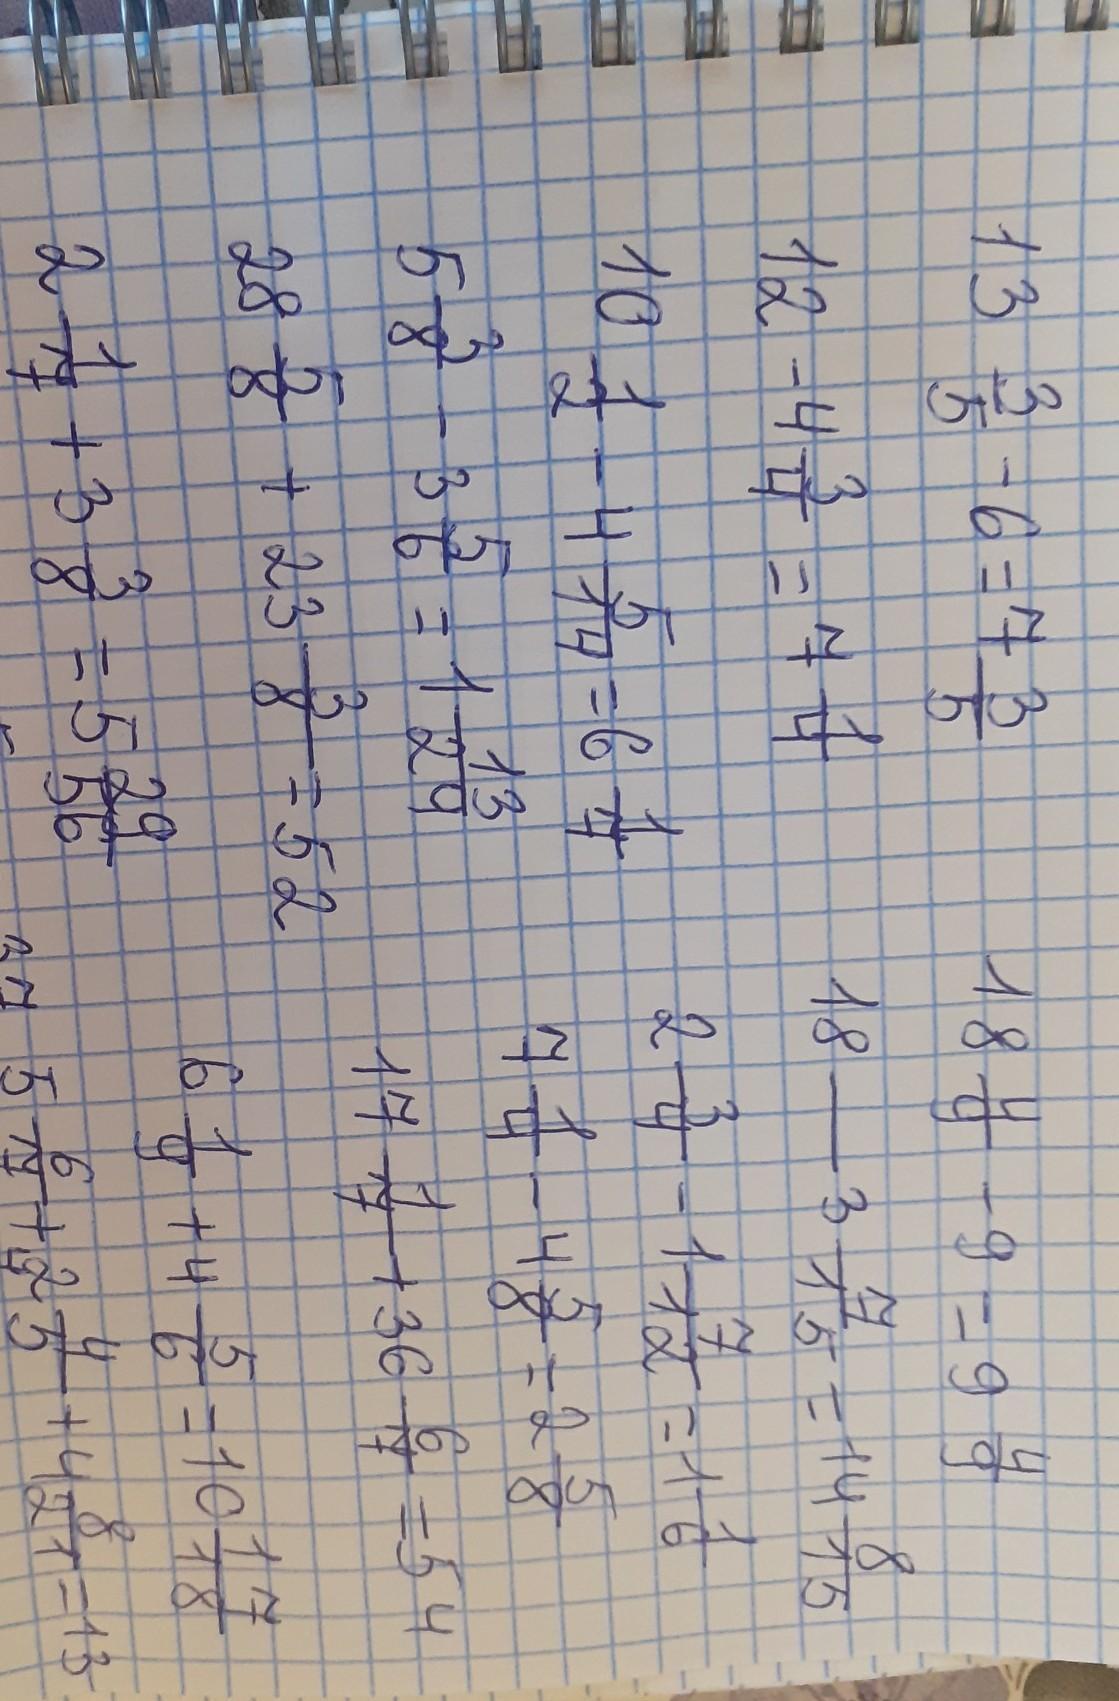 13 3/5 - 6 = 7 3/5
12 - 4 3/4 = 7 1/4
10 1/2 - 4 5/14 = 6 1/7
5 3/8 - 3 5/6 = 1 13/24
28 5/8 + 23 3/8 = 52
2 1/7 + 3 3/8 = 5 29/56
18 4/9 - 9 = 9 4/9
18 - 3 7/15 = 14 8/15
2 3/4 - 1 7/12 = 1 1/6
7 1/4 - 4 5/8 = 2 5/8
17 1/7 + 36 6/7 = 54
6 1/9 + 4 5/6 = 10 17/18
5 6/7 + 2 4/5 + 4 8/21 = 13